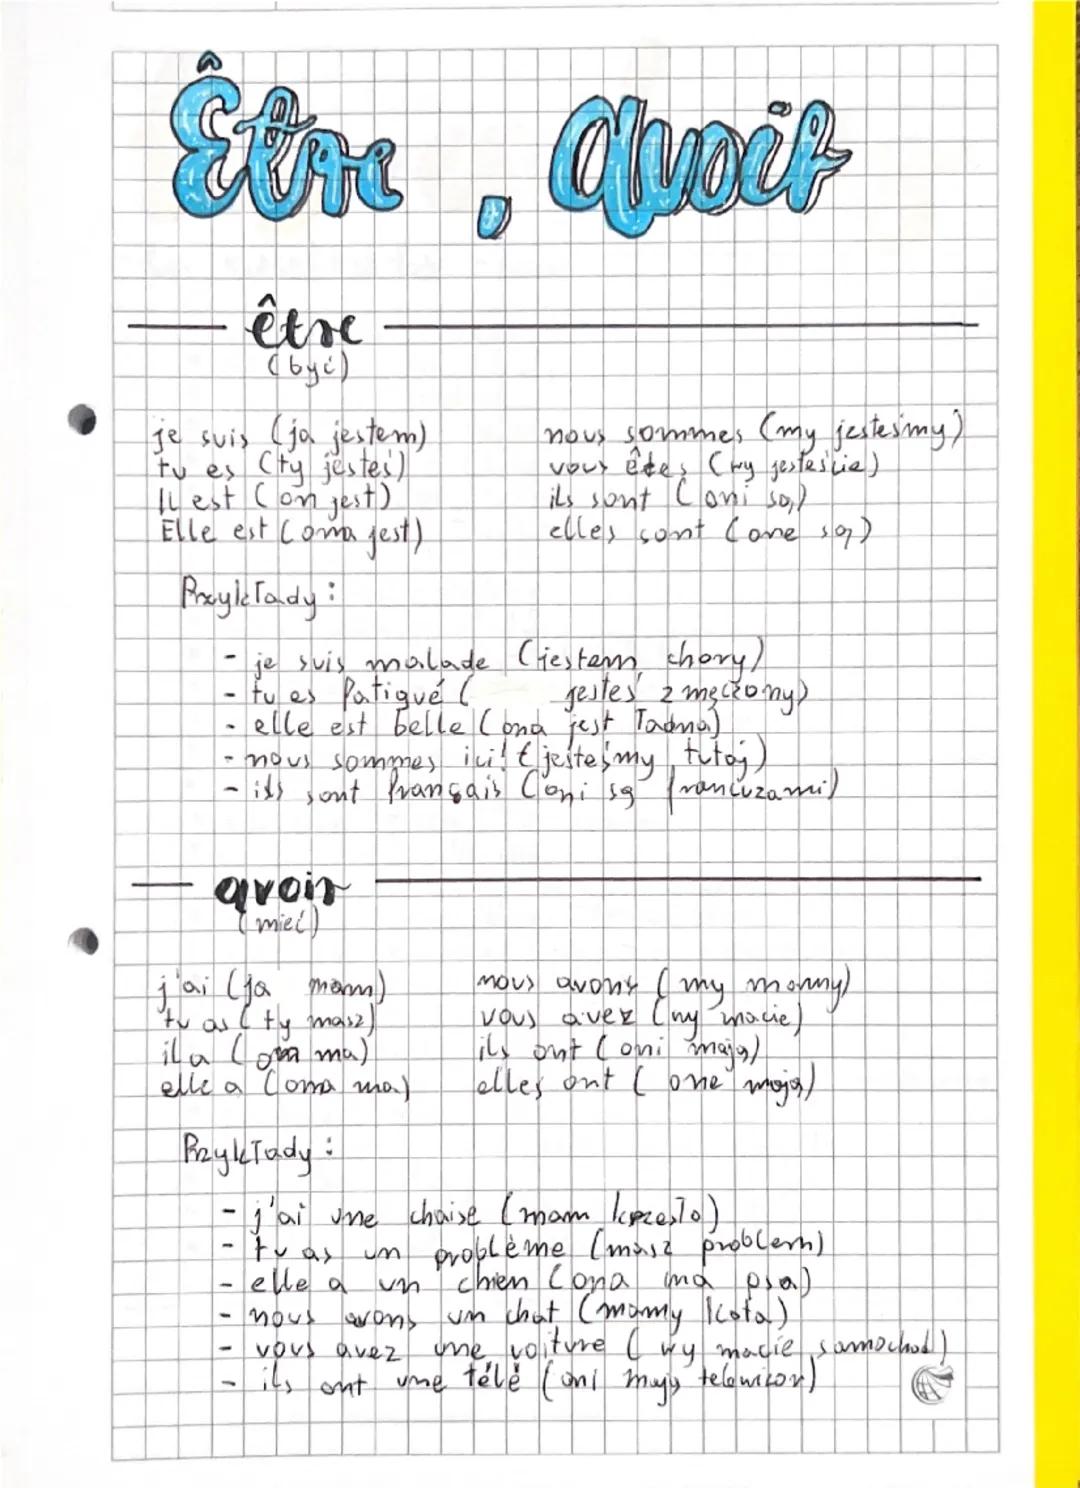 Être, avoir
être
(być)
je suis (ja jestem)
tu es (ty jesteś)
Il est (on jest)
Elle est (ona jest)
nous sommes (my jesteśmy)
vous êtes (wy jesteście)
ils sont (oni są)
elles sont (one są)
Przykłady:
- je suis malade (jestem chory)
- tu es fatigué ( jesteś zmęczony)
- elle est belle (ona jest ładna)
- nous sommes ici! (jesteśmy tutaj)
- ils sont français (oni są francuzami)
avoir
(mieć)
j'ai (ja mam)
tu as (ty masz)
il a (on ma)
elle a (ona ma)
nous avons (my mamy)
vous avez (wy macie)
ils ont (oni mają)
elles ont (one mają)
Przykłady:
- j'ai une chaise (mam krzesło)
- tu as un problème (masz problem)
- elle a un chien (ona ma psa)
- nous avons un chat (mamy kota)
- vous avez une voiture (wy macie samochod)
- ils ont une télé (oni mają telewizor)